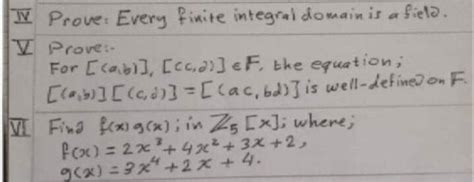 IV Prove: Every finite integral domain is a field.
V Prove:-
For [(a,b)], [(c,d)] ∈ F, the equation;
[(a,b)][(c,d)] = [(ac, bd)] is well-defined on F.
VI Find f(x)g(x); in ℤ₅[x]; where;
f(x) = 2x³ + 4x² + 3x + 2,
g(x) = 3x⁴ + 2x + 4.